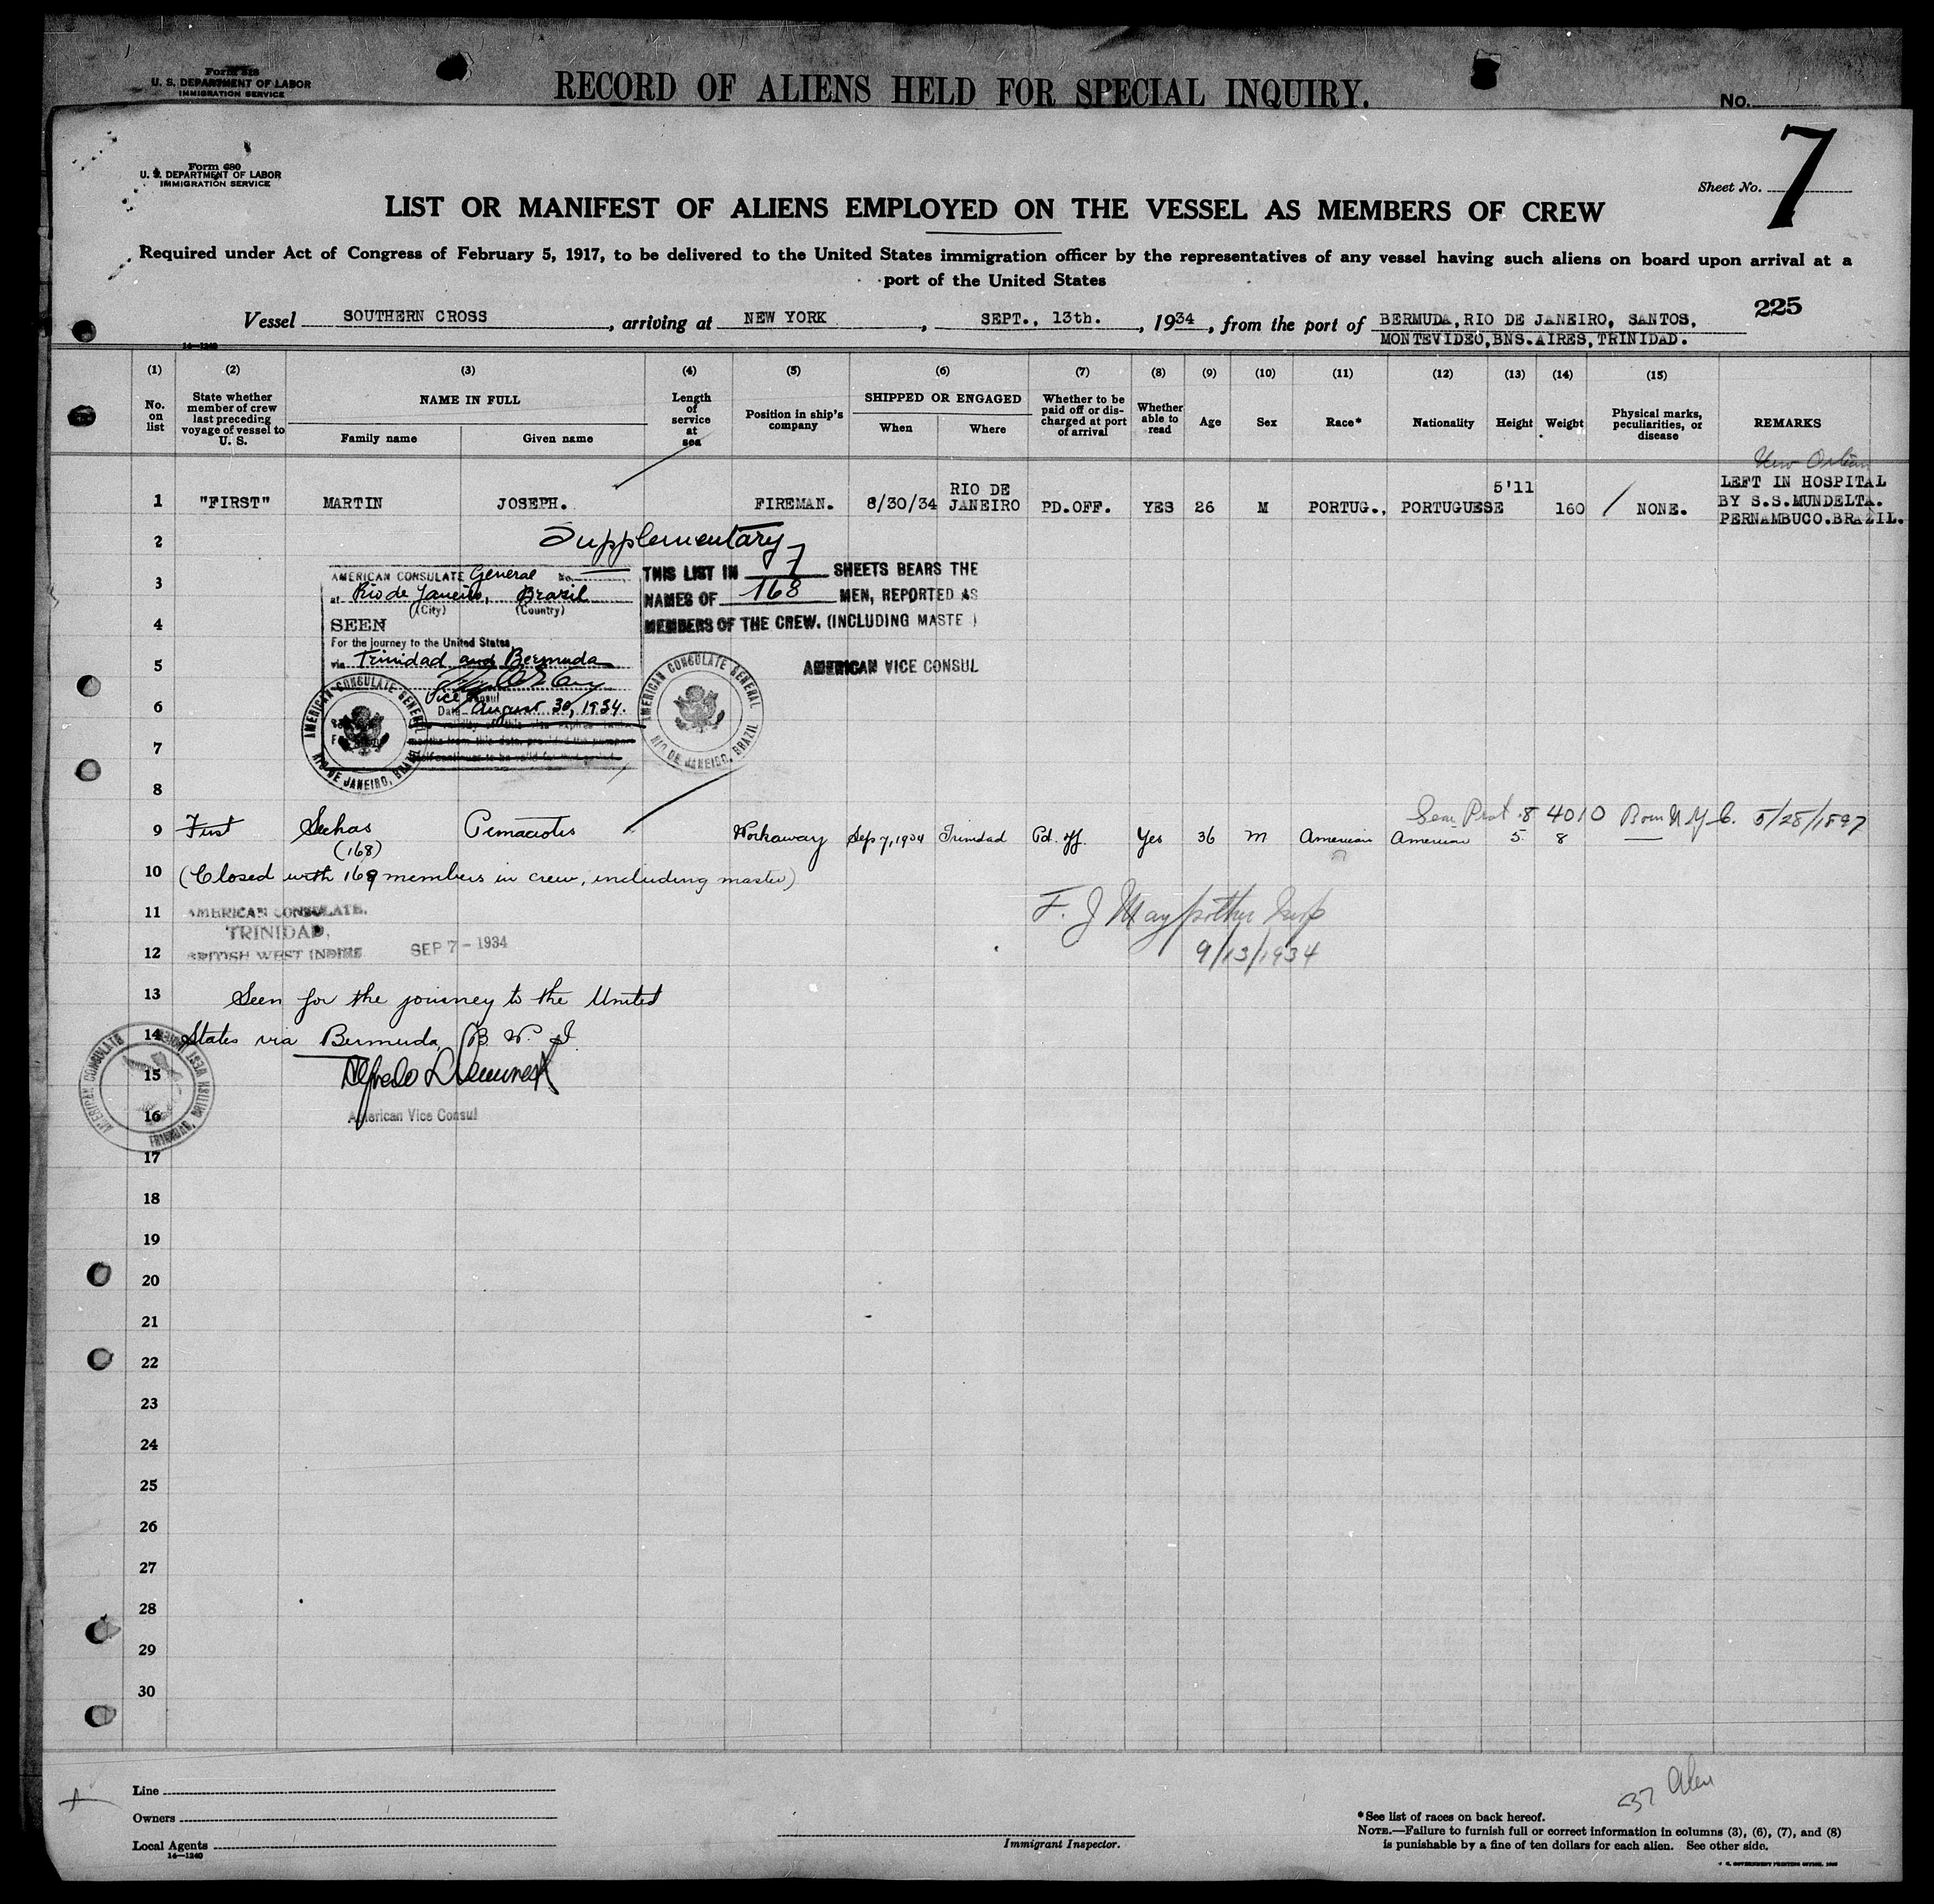 Form 518
U. S. DEPARTMENT OF LABOR
IMMIGRATION SERVICE
RECORD OF ALIENS HELD FOR SPECIAL INQUIRY.
No.
Form 680
U. S. DEPARTMENT OF LABOR
IMMIGRATION SERVICE
Sheet No. 7
LIST OR MANIFEST OF ALIENS EMPLOYED ON THE VESSEL AS MEMBERS OF CREW
Required under Act of Congress of February 5, 1917, to be delivered to the United States immigration officer by the representatives of any vessel having such aliens on board upon arrival at a
port of the United States
225
Vessel SOUTHERN CROSS, arriving at NEW YORK, SEPT., 13th., 1934, from the port of BERMUDA, RIO DE JANEIRO, SANTOS,
MONTEVIDEO, BNS. AIRES, TRINIDAD.
14—1240
(1) (2) (3) (4) (5) (6) (7) (8) (9) (10) (11) (12) (13) (14) (15)
No. on list
State whether member of crew last preceding voyage of vessel to U. S.
NAME IN FULL
Family name
Given name
Length of service at sea
Position in ship's company
SHIPPED OR ENGAGED
When
Where
Whether to be paid off or discharged at port of arrival
Whether able to read
Age
Sex
Race*
Nationality
Height
Weight
Physical marks, peculiarities, or disease
REMARKS
New Orlean
1 "FIRST" MARTIN JOSEPH. FIREMAN. 8/30/34 RIO DE JANEIRO PD.OFF. YES 26 M PORTUG., PORTUGUESE 5'11 160 / NONE. LEFT IN HOSPITAL
BY S.S.MUNDELTA.
PERNAMBUCO.BRAZIL.
2 Supplementary
3 AMERICAN CONSULATE General No.
at Rio de Janeiro, Brazil
(City) (Country)
4 SEEN
For the journey to the United States
5 via Trinidad and Bermuda
Vice Consul
6 Date August 30, 1934.
7
8
AMERICAN CONSULATE GENERAL
RIO DE JANEIRO, BRAZIL
THIS LIST IN 7 SHEETS BEARS THE
NAMES OF 168 MEN, REPORTED AS
MEMBERS OF THE CREW. (INCLUDING MASTE )
AMERICAN VICE CONSUL
AMERICAN CONSULATE GENERAL
RIO DE JANEIRO, BRAZIL
84010 Born N.Y.C. 5/28/1897
9 First Sechas Workaway Sep 7, 1934 Trinidad Pd. off. Yes 36 M American American 5 8 —
(168)
10 (Closed with 169 members in crew, including master)
11 AMERICAN CONSULATE.
TRINIDAD,
12 BRITISH WEST INDIES SEP 7 - 1934
9/13/1934
13 Seen for the journey to the United
14 States via Bermuda, B. W. I.
15
16 American Vice Consul
AMERICAN CONSULATE
TRINIDAD, BRITISH WEST INDIES
17
18
19
20
21
22
23
24
25
26
27
28
29
30
37 Alien
Line
Owners
Local Agents
14—1240
Immigrant Inspector.
*See list of races on back hereof.
NOTE.—Failure to furnish full or correct information in columns (3), (6), (7), and (8)
is punishable by a fine of ten dollars for each alien. See other side.